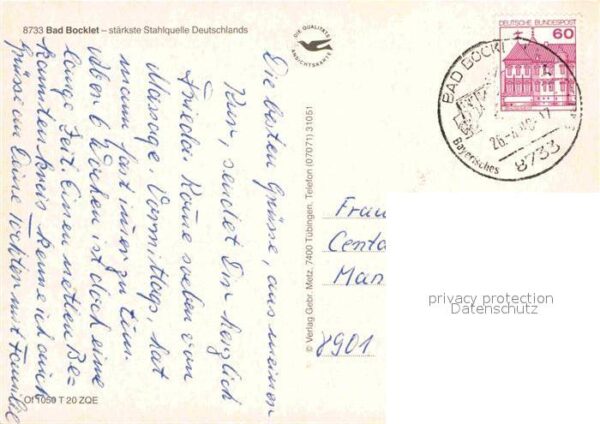 8733 Bad Bocklet – stärkste Stahlquelle Deutschlands
DIE QUALITÄTS
ANSICHTSKARTE
DEUTSCHE BUNDESPOST
60
BAD BOCKLET
26.-4.
-17
Bayerisches
8733
Die besten Grüsse, aus meinen
Kur, sendet Dir herzlich
Frieda. Käme soeben von
Massage. Vormittags, hat
man fast immer zu tun.
Aber 6 Wochen ist doch eine
lange Zeit. Einen netten Be=
kanntenkreis kenne ich auch
Grüsse an Deine Töchter mit Familie
© Verlag Gebr. Metz, 7400 Tübingen, Telefon (07071) 31051
Frau
Centa
Man
8901
privacy protection
Datenschutz
Of 1050 T 20 ZQE